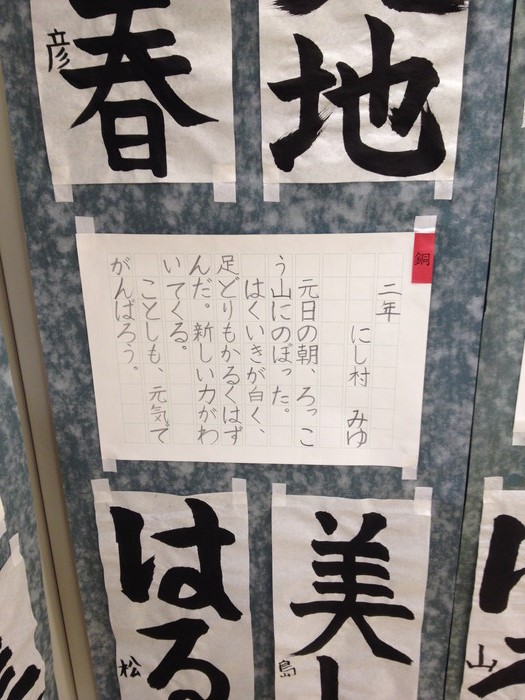 春
彦
地
銅
二年
にし村 みゆ
元日の朝、ろっこ
う山にのぼった。
はくいきが白く、
足どりもかるくはず
んだ。新しい力がわ
いてくる。
ことしも、元気で
がんばろう。
美し
島
はる
松
山